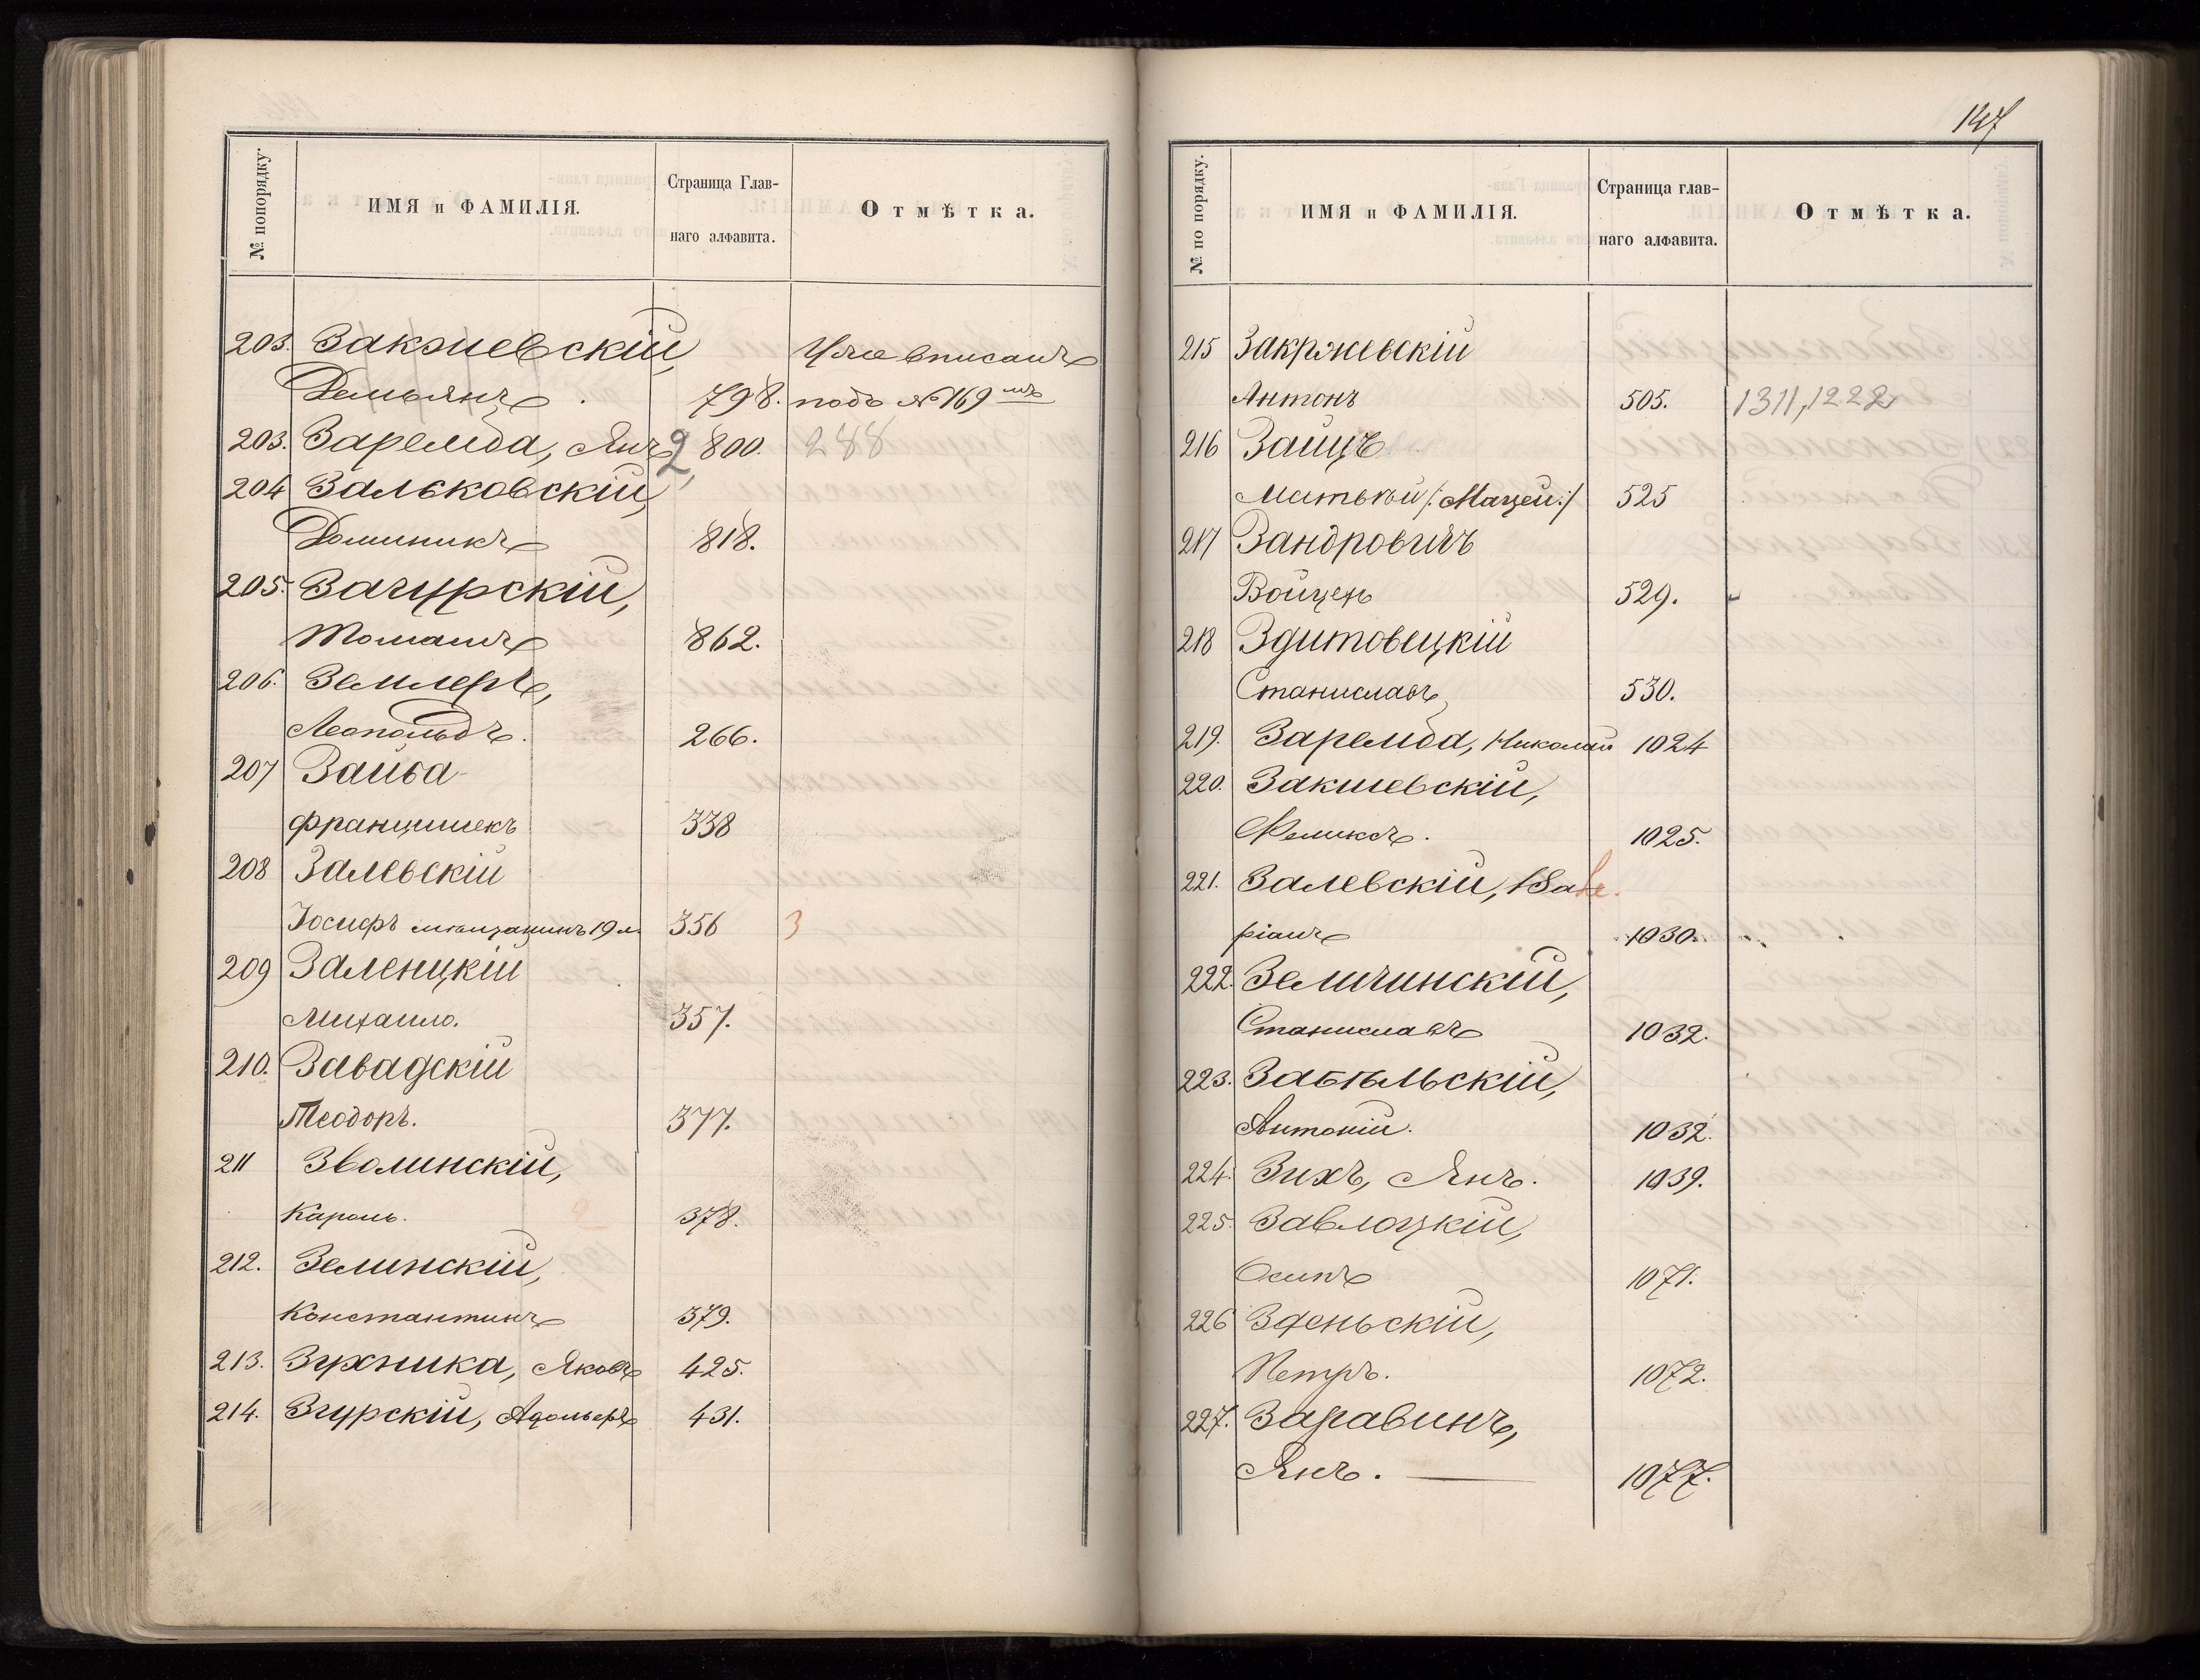 № попорядку.
ИМЯ и ФАМИЛІЯ.
Страница Глав-
наго алфавита.
Отмѣтка.
203. Закжевскій, Уже вписанъ
Демьянъ. 798. подъ №169мъ
203. Заремба, Янъ 2 800. 288
204 Зальковскій,
Доминикъ 818.
205. Зачурскій,
Томашъ 862.
206. Землеръ,
Леопольдъ. 266.
207 Зайва
Францишекъ 338
208 Залевскій
Іосифъ мѣщанинъ 19 л. 356 3
209 Заленцкій
Михаило. 357.
210. Завадскій
Теодоръ. 377.
211 Зволинскій,
Кароль. 378.
212. Зелинскій,
Константинъ 379.
213. Зухника, Яковъ 425.
214. Згурскій, Адольфъ 431.
147
№ по порядку.
ИМЯ и ФАМИЛІЯ.
Страница глав-
наго алфавита.
Отмѣтка.
215 Закржевскій
Антонъ 505. 1311, 1222
216 Заицъ
Матьвѣй /:Мацей:/ 525
217 Зандровичъ
Войцехъ 529.
218 Здитовецкій
Станиславъ 530.
219. Заремба, Николай 1024
220. Закшевскій,
Феликсъ. 1025.
221. Залевскій,
ріанъ 1030.
222. Зеличинскій,
Станиславъ 1032.
223. Забѣльскій,
Антоній. 1032.
224. Зихъ, Янъ. 1039.
225. Завлоцкій,
Осипъ 1071.
226 Зденьскій,
Петръ. 1072.
227. Заравинъ,
Янъ. 1077.